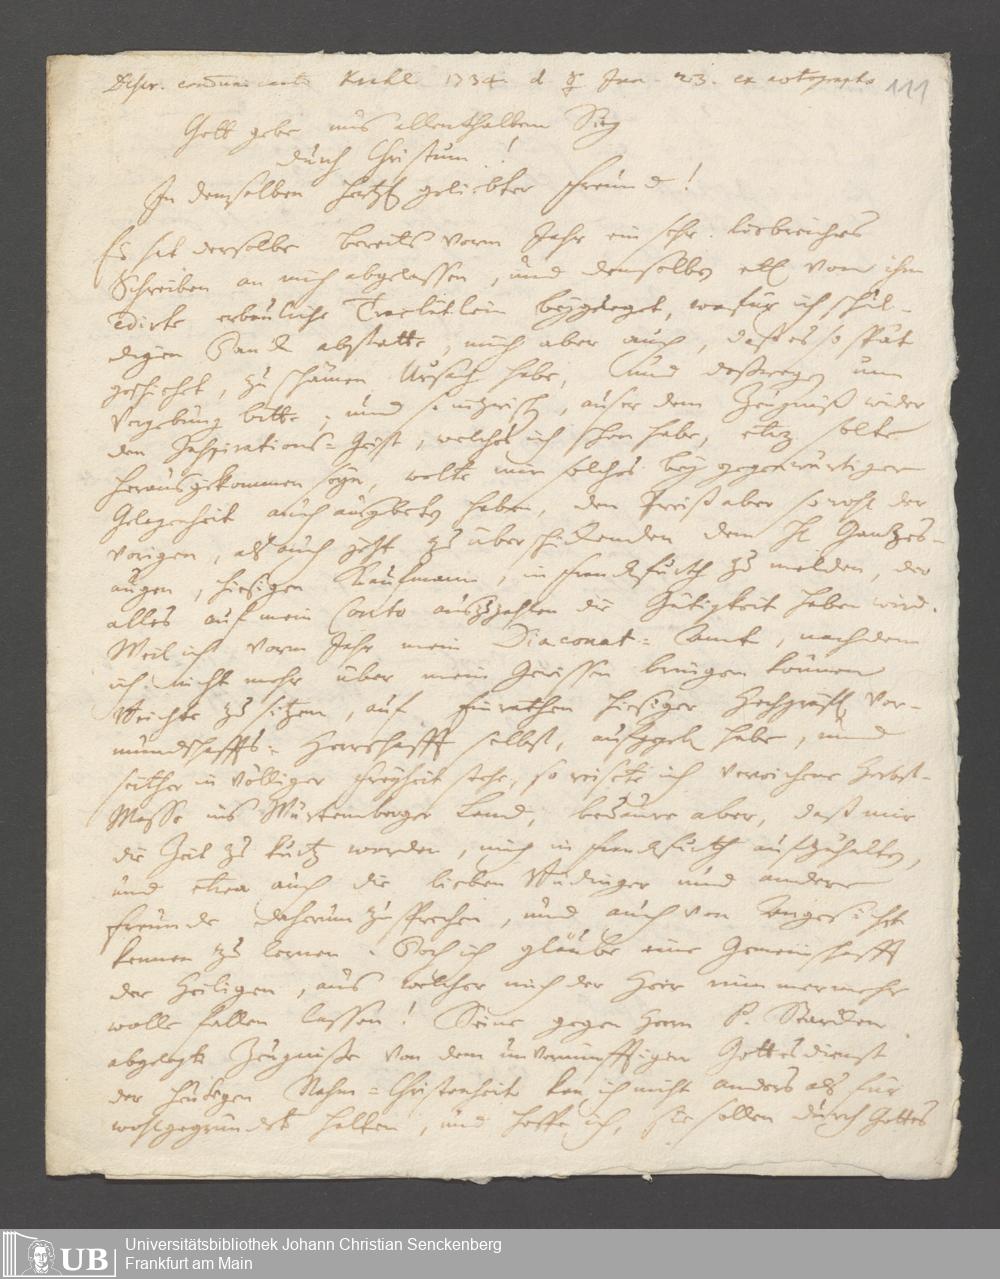 Descr. communicante Kuhl 1734 d. Jan. 23. ex autographo 111
Gott gebe uns allenthalben Sieg
durch Christum!
In demselben hertzl. geliebter Freund!
Es hat derselbe bereits vorm Jahr ein sehr liebreiches
Schreiben an mich abgelassen, und demselben etl. von ihm
edirte erbauliche Tractätlein beygeleget, wofür ich schul-
digen Danck abstatte, mich aber auch, daß es so spät
geschieht, zu schämen Ursach habe, und deßwegen um
Vergebung bitte; und, auser dem Zeugniß wider
den Inspirations-Geist, welches ich schon habe, etwz. solte
herausgekommen seyn, wolte mir solches bey gegenwärtiger
Gelegenheit auch ausgebeten haben, den Preiß aber sowohl der
vorigen, als auch jetzt zu überschickenden dem H. Gantzes-
augen, hiesigen Kaufmann, in Franckfurth zu melden, der
alles auf mein Conto auszuzahlen die Gütigkeit haben wird.
Weil ich vorm Jahr mein Diaconat-Amt, nachdem
ich nicht mehr über mein Gewissen bringen können
Beichte zu sitzen, auf Einrathen hiesiger Hochgräfl. Vor-
mundschaffts-Herrschafft selbst, aufgegeb. habe, und
seither in völliger Freyheit stehe, so reisete ich verwichene Herbst-
Messe ins Würtemberger Land, bedaure aber, daß mir
die Zeit zu kurtz worden, mich in Franckfurth aufzuhalten,
und etwa auch die lieben Büdinger und andere
Freunde daherum zu sprechen, und auch von Angesicht
kennen zu lernen. Doch ich gläube eine Gemeinschafft
der Heiligen, aus welcher mich der Herr nimmermehr
wolle fallen lassen! Seine gegen Herrn P.
abgelegte Zeugnisse von dem unvernünfftigen Gottesdienst
der heutigen Nahm-Christenheit kan ich nicht anders als für
wohlgegründet halten, und hoffe ich, sie sollen durch Gottes
Universitätsbibliothek Johann Christian Senckenberg
Frankfurt am Main
UB